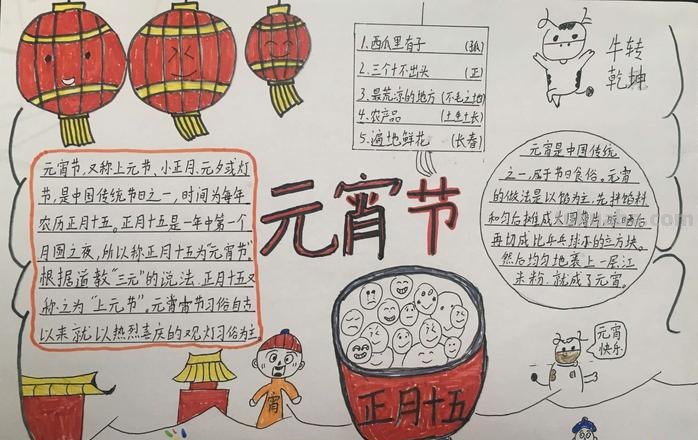 1.西瓜里有子 (孤)
2.三个十不出头 (正)
3.最荒凉的地方 (不毛之地)
4.农产品 (土生土长)
5.遍地鲜花 (长春)
牛转
乾坤
元宵节,又称上元节、小正月、元夕或灯
节,是中国传统节日之一,时间为每年
农历正月十五。正月十五是一年中第一个
月圆之夜,所以称正月十五为"元宵节"
根据道教"三元"的说法,正月十五又
称之为"上元节"。元宵节习俗自古
以来就以热烈喜庆的观灯习俗为主
元宵节
元宵是中国传统
之一,属于节日食俗。元宵
的做法是以馅为主,先拌馅料
和匀后摊成大圆薄片,晾晒后
再切成比乒乓球小的立方块。
然后均匀地裹上一层江
米粉,就成了元宵。
元宵
快乐
宵
正月十五